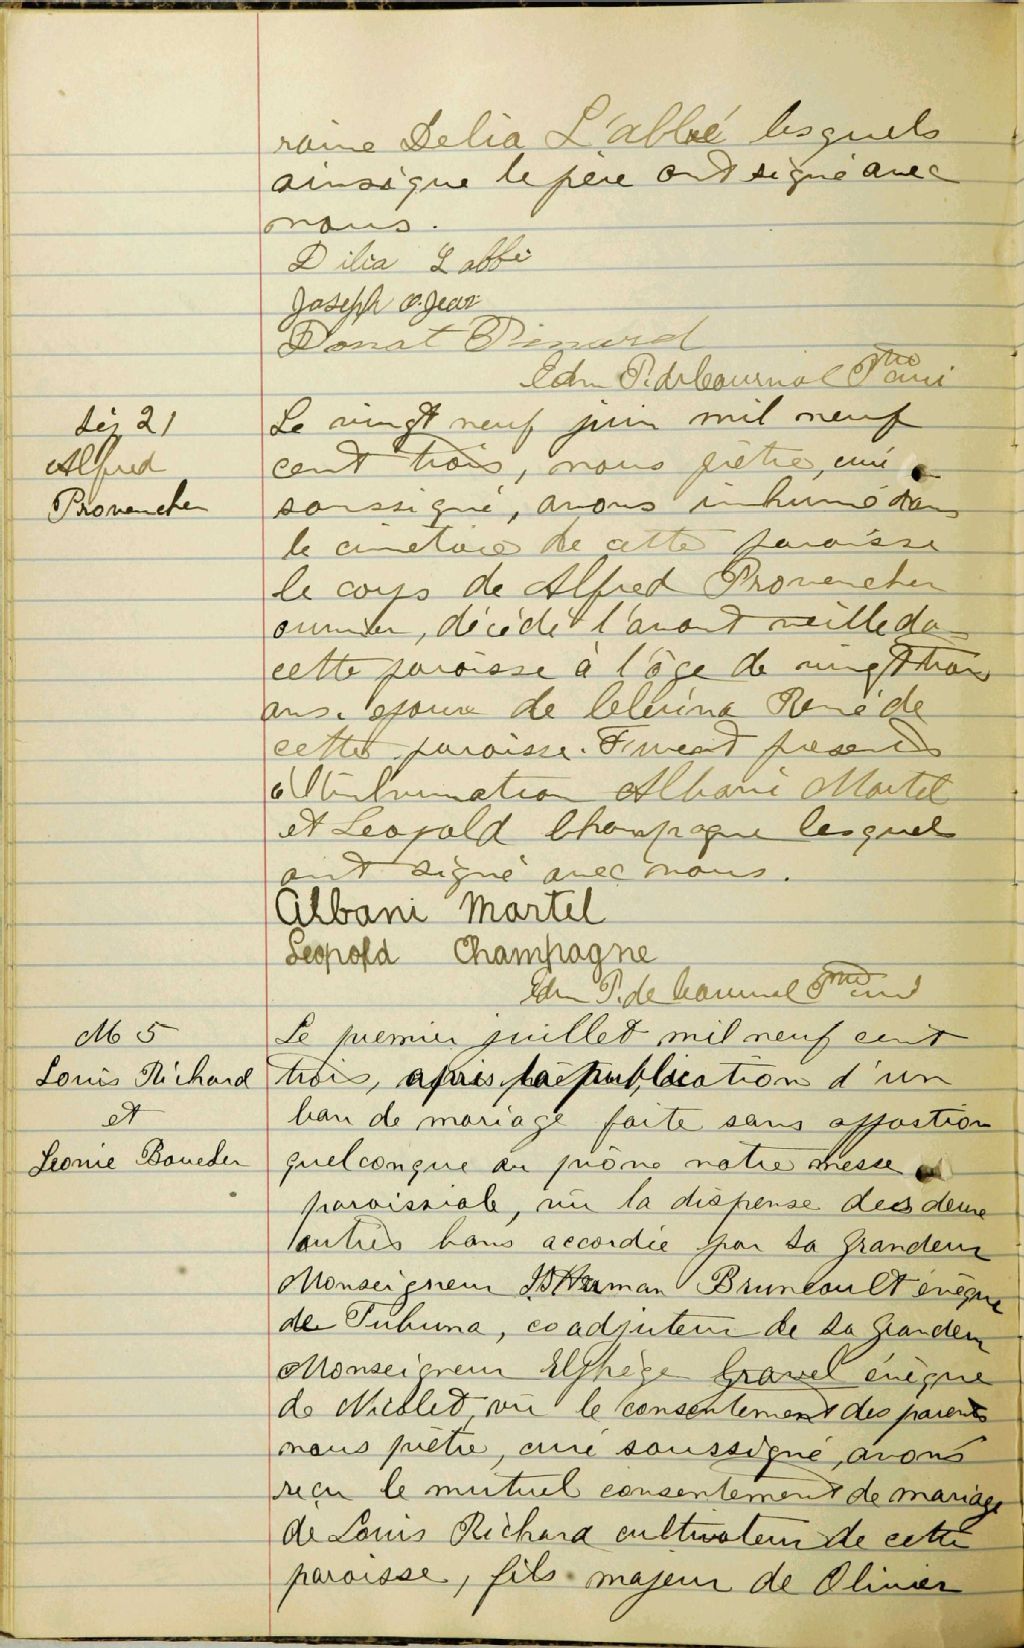 raine Delia L'abbé lesquels
ainsi que le père ont signé avec
nous.
Dilia Labbé
Joseph O. Jean
Donat Pinard
Edm P. de Courval Ptre curé
Sép 21
Alfred
Provencher
Le vingt neuf juin mil neuf
cent trois, nous prêtre, curé
soussigné, avons inhumé dans
le cimetière de cette paroisse
le corps de Alfred Provencher
ouvrier, décédé l'avant veille de
cette paroisse à l'âge de vingt trois
ans. époux de Célérina René de
cette paroisse. Furent présents
à l'inhumation Albani Martel
et Leopold Champagne lesquels
ont signé avec nous.
Albani Martel
Leopold Champagne
Edm P. de Courval Ptre curé
M 5
Louis Richard
et
Leonie Boucher
Le premier juillet mil neuf cent
trois, après la publication d'un
ban de mariage faite sans oppostion
quelconque au prône notre messe
paroissiale, vu la dispense des deux
autres bans accordée par Sa Grandeur
Monseigneur Herman Bruneault évêque
de Tubuna, coadjuteur de Sa Grandeur
Monseigneur Elphège Gravel évêque
de Nicolet, vu le consentement des parents
nous prêtre, curé soussigné, avons
reçu le mutuel consentement de mariage
de Louis Richard cultivateur de cette
paroisse, fils majeur de Olivier